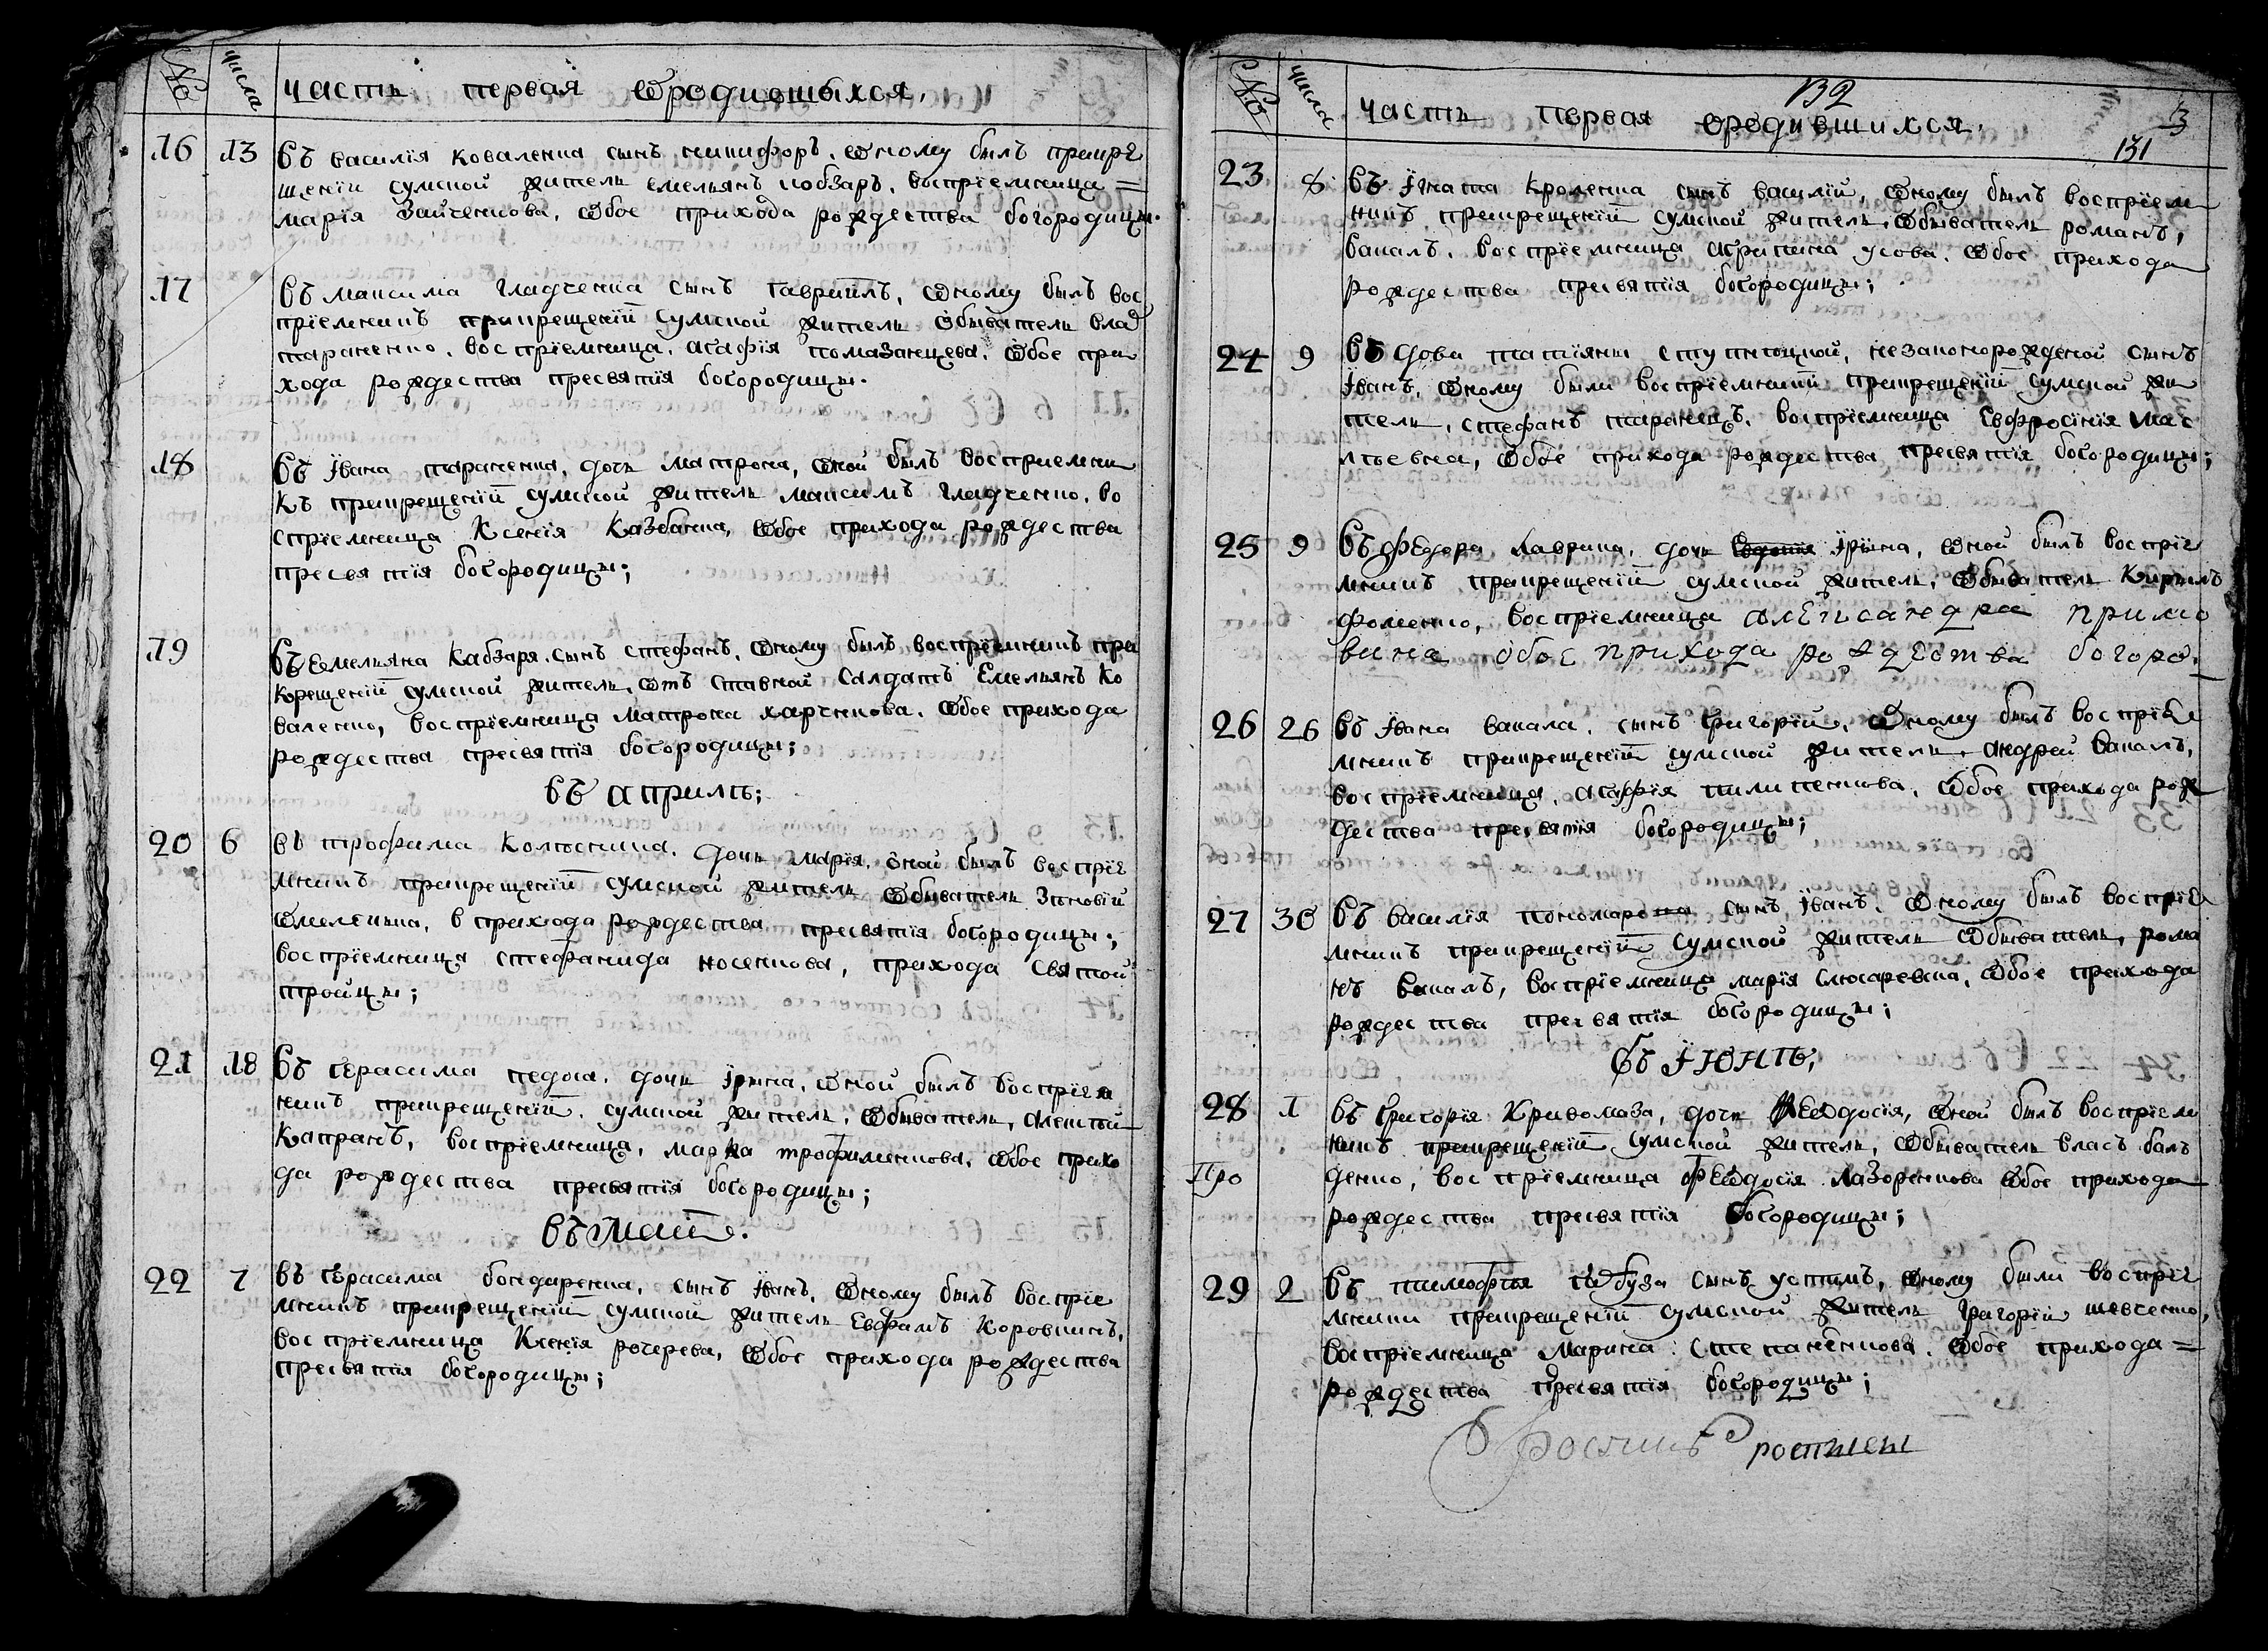 № числа часть первая о родившыхся.
16 13 въ василія коваленка сынъ никифоръ. оному былъ прикре
щеніи сумской житель емельянъ кобзаръ, воспріемница =
марія зайченкова, обое прихода рождества богородицы.
17 въ максима гладченка сынъ гавриилъ, оному былъ вос
пріемникъ прикрещеніи сумской житель обыватель влад
тараненко. воспріемница, агафія помазанцева. обое при
хода рождества пресвятія богородицы.
18 въ Ївана тараненка, дочь матрона, оной былъ восприемни
къ прикрещеніи сумской житель максимъ гладченко. во
спріемница Ксенія Казбанка, обое прихода рождества
пресвятія богородицы;
19 въ Емельяна Кабзаря. сынъ стефанъ, оному былъ воспріемникъ при
крещеніи сумской житель, отъ ставной салдатъ Емельянъ Ко
валенко, воспріемница матрона харченкова. обое прихода
рождества пресвятія богородицы;
въ априлѣ;
20 6 въ трофима Колюсника. дочь марія. оной былъ воспріе
мникъ прикрещеніи сумской житель обыватель зиновій
омеленка, в прихода рождества пресвятія богородицы;
воспріемница стефанида носенкова, прихода святой
тройцы;
21 18 въ Герасима педока. дочь Їрина, оной былъ воспріем
никъ прикрещеніи. сумской житель. обыватель, алексѣй
Капранъ, воспріемница, марѳа трофименкова. обое прихо
да рождества пресвятія богородицы;
въ маіи.
22 7 въ Герасима бондаренка, сынъ Їванъ, оному былъ воспріе
мникъ прикрещеніи сумской житель Евфамъ Коровкинъ.
воспріемница Ксенія рочерева, обое прихода рождества
пресвятія богородицы;
132 3
№ числа часть первая о родившихся.
131
23 8 въ Їгната Кроленка сынъ василій, оному былъ воспріем
никъ прикрещеніи сумской житель. обыватель романъ,
вакалъ. воспріемница агрипина усова. обое прихода
рождества пресвятія богородицы;
24 9 въ вдови татіяны ступницкой, незаконорожденой сынъ
Їванъ, оному были воспріемники прикрещеніи сумской жи
тель, стефанъ таранецъ. воспріемница Евфросінія мас
люевна, обое прихода рождества пресвятія богородицы;
25 9 въ Федора лаврика, дочь Їрина, оной былъ воспріе
мникъ прикрещеніи сумской житель, обыватель Кирилъ
фоменко, воспріемница александра примо
вина обое прихода рождества богоро.
26 26 въ Ївана вакала. сынъ Григорій. оному былъ воспріе
мникъ прикрещеніи сумской житель. андрей вакалъ,
воспріемница, агафія пилипенкова, обое прихода рож
дества пресвятія богородицы;
27 30 въ василія пономарона сынъ Їванъ. оному былъ воспріе
мникъ прикрещеніи сумской житель обыватель, рома
нъ вакалъ, воспріемница марія слюсаревна, обое прихода
рождества пресвятія богородицы;
въ Їюнѣ;
28 1 въ Григорія Кривомаза, дочь Феодосія, оной былъ воспріем
никъ прикрещеніи сумской житель, обыватель власъ бон
Про денко, воспріемница Феодосія лазоренкова обое прихода
рождества пресвятія богородицы;
29 2 въ тимофѣя гарбуза сынъ устинъ, оному были воспріе
мники прикрещеніи сумской житель Григорій шевченко,
воспріемница марина степаненкова. обое прихода =
рождества пресвятія богородицы;